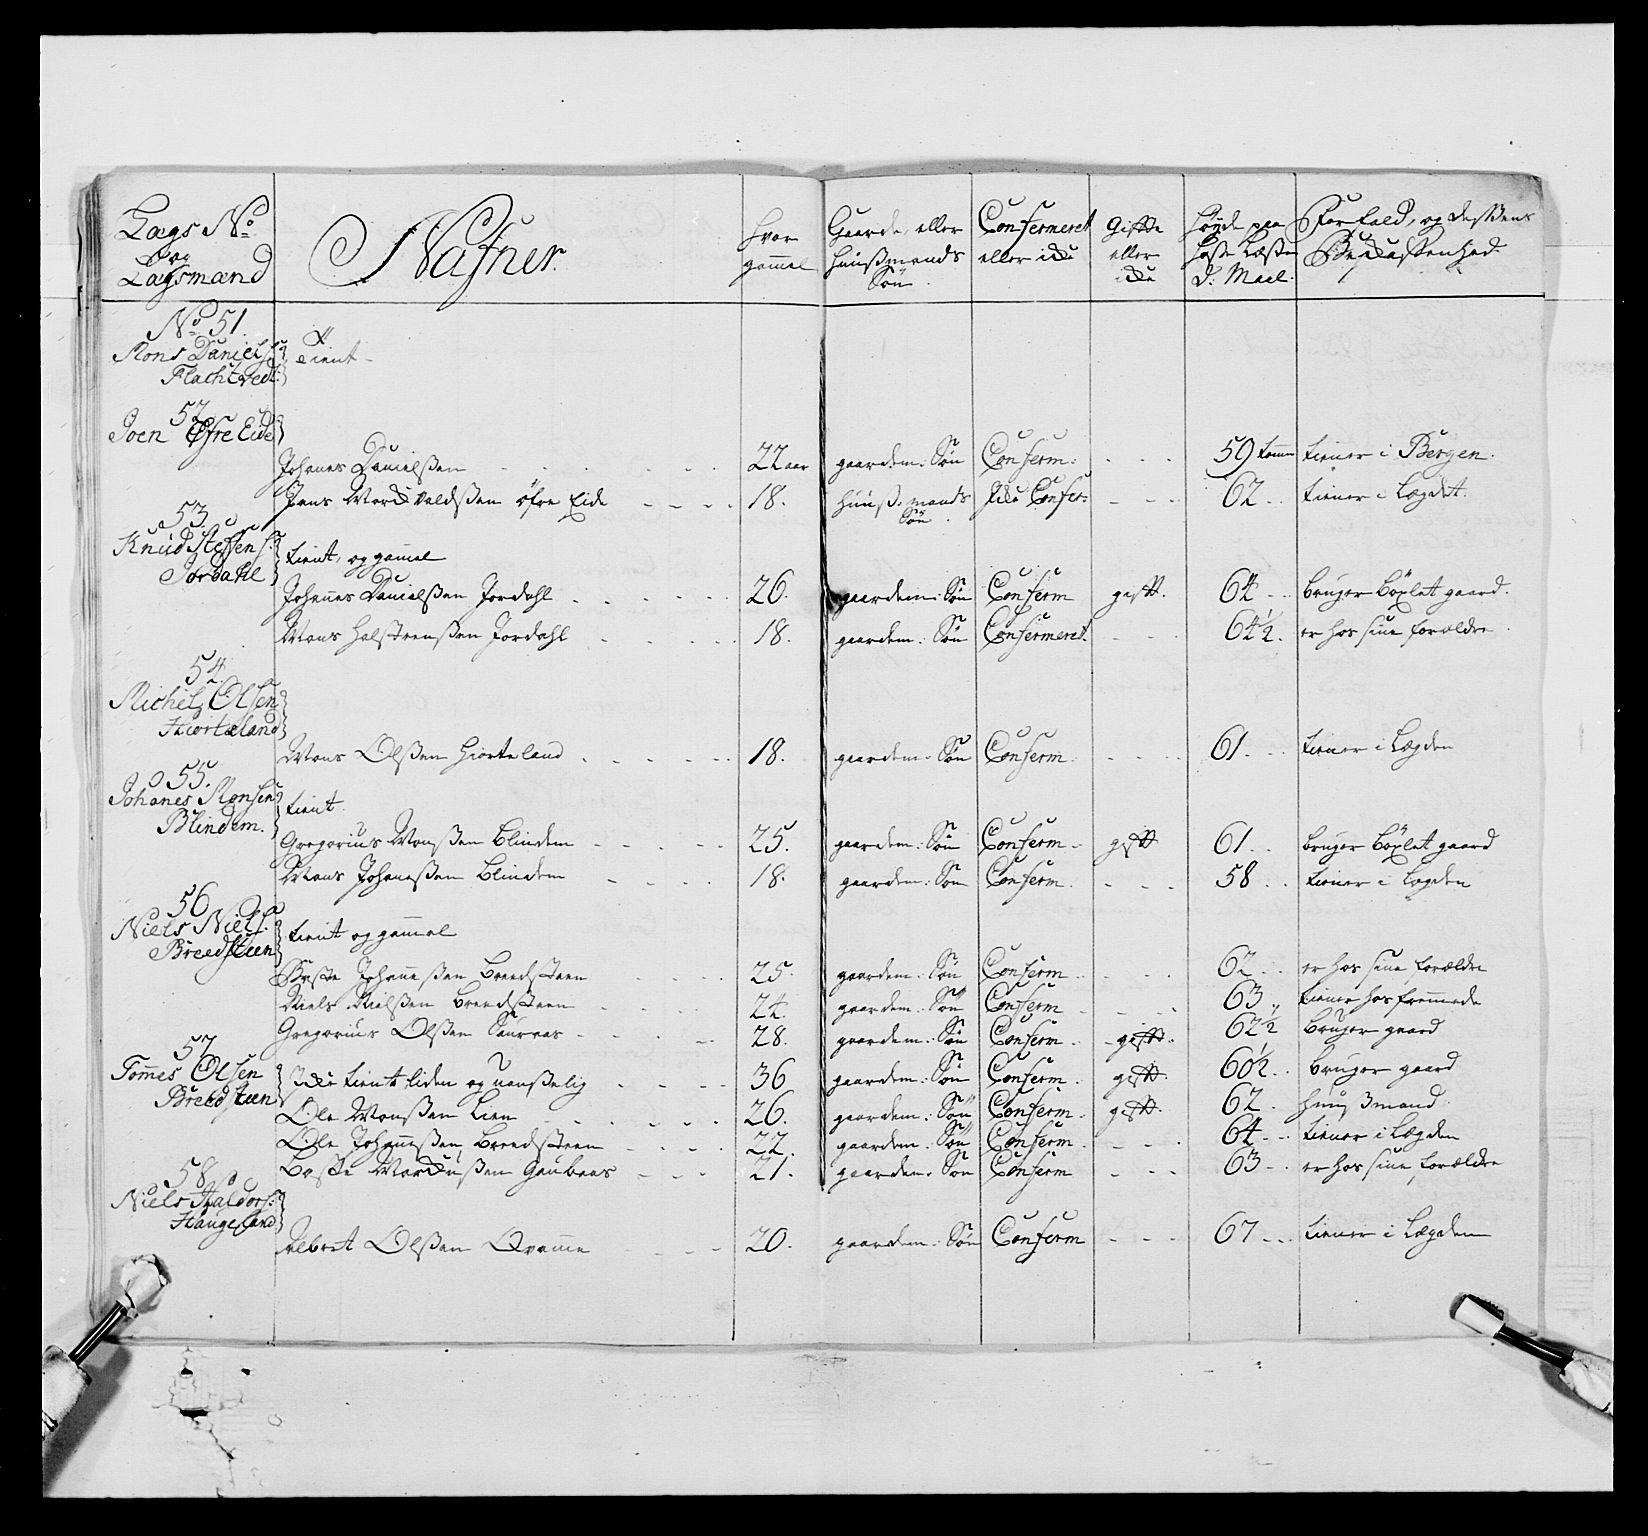 Lægs No
og
Lægsmænd
Nafner.
hvor
gammel
Gaards eller
huusmands
Søn.
Confermeret
eller icke
Gifte
eller
icke
Høyde paa
D: Maal.
Forfald, og deßens
Beskaffenhed
No 51.
Mons Daniels:
Flachtvedt
tient
52
Joen Øfre Eide
Johanes Danielßen 22 aar gaardm: Søn Conferm: 59 tomm tiener i Bergen.
Jens øfre Eide 18. huus:mands Søn. Icke Confer: 62 tiener i Lægdet.
53.
Knud Steffens:
Jordahl
tient, og gamel
Johannes Danielßen Jordahl 26. gaardem: Søn Conferm gift. 64 bruger böxlet gaard.
Mons Holsteenßen Jordahl 18. gaardem: Søn Confermeret. 64½. er hos sine forældre.
54.
Michel Olsen
Hiorteland
Mons Olßen Hiorteland 18. gaardem: Søn Conferm. 61. tiener i Lægden
55.
Johanes Monsen
Blindem.
tient
Gregorius Monßen Blindem 25. gaardem: Søn Conferm. gift 61. bruger böxlet gaard
Mons Johanneßen Blindem 18. gaardem: Søn Conferm. 58 tiener i Lægden
56
Niels Niels:
Breedsteen
tient og gammel
Johanneßen Breedsteen 25. gaardem: Søn Conferm 62 er hos sine forældre
Niels Nielßen Breedsteen 24. gaardem: Søn Conferm 63 tiener hos fremmede
Gregorius Olßen 28. gaardem: Søn Conferm gift. 62½ bruger gaard
57
Tomes Olsen
Breedsteen
Icke tient liden og uanselig 36 gaardem: Søn Conferm gift. 60½. bruger gaard
Ole Monßen Lien 26. gaardem: Søn Conferm gift. 62. huusmand
Ole Johanneßen Breedsteen 22. gaardem: Søn Conferm 64 tiener i Lægden
21. gaardem: Søn Conferm 63 er hos sine forældre
58
Niels Haldors:
Haugeland
Albret Olßen Qvamme 20. gaardem: Søn Conferm 67 tiener i Lægden